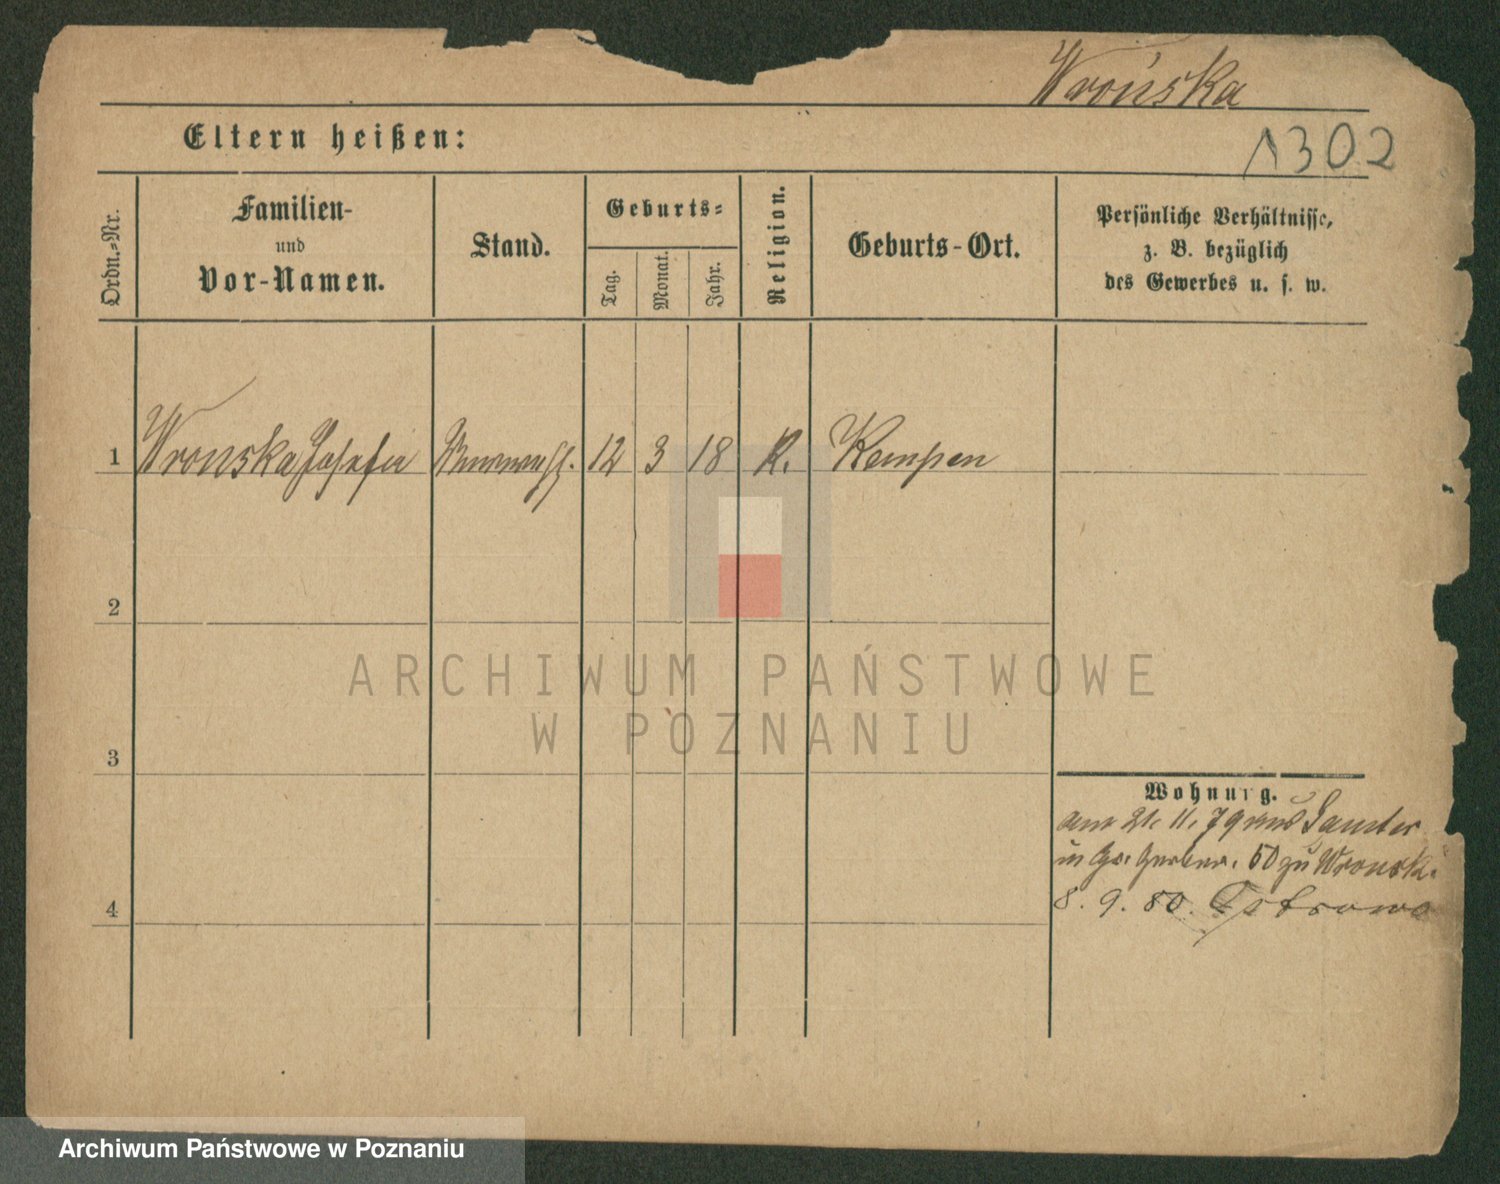 Wrońska
Eltern heißen:
1302
Ordn.-Nr.
Familien-
und
Vor-Namen.
Stand.
Geburts-
Tag.
Monat.
Jahr.
Religion.
Geburts-Ort.
Persönliche Verhältnisse,
z. B. bezüglich
des Gewerbes u. s. w.
1 Wronska Josefa 12 3 18 K. Kempen
2
3
4
Wohnung.
am 21. 11. 79 aus Samter
in Gr. Gerber. 50 zu Wronski
8. 9. 80. Ostrowo
ARCHIWUM PAŃSTWOWE
W POZNANIU
Archiwum Państwowe w Poznaniu